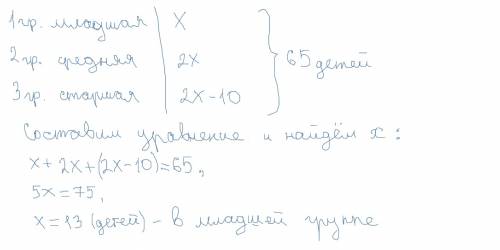 1гр. младшая x
2гр. средняя 2x 65 детей
3гр. старшая 2x-10
Составим уравнение и найдём x:
x+2x+(2x-10)=65,
5x=75,
x=13 (детей) - в младшей группе